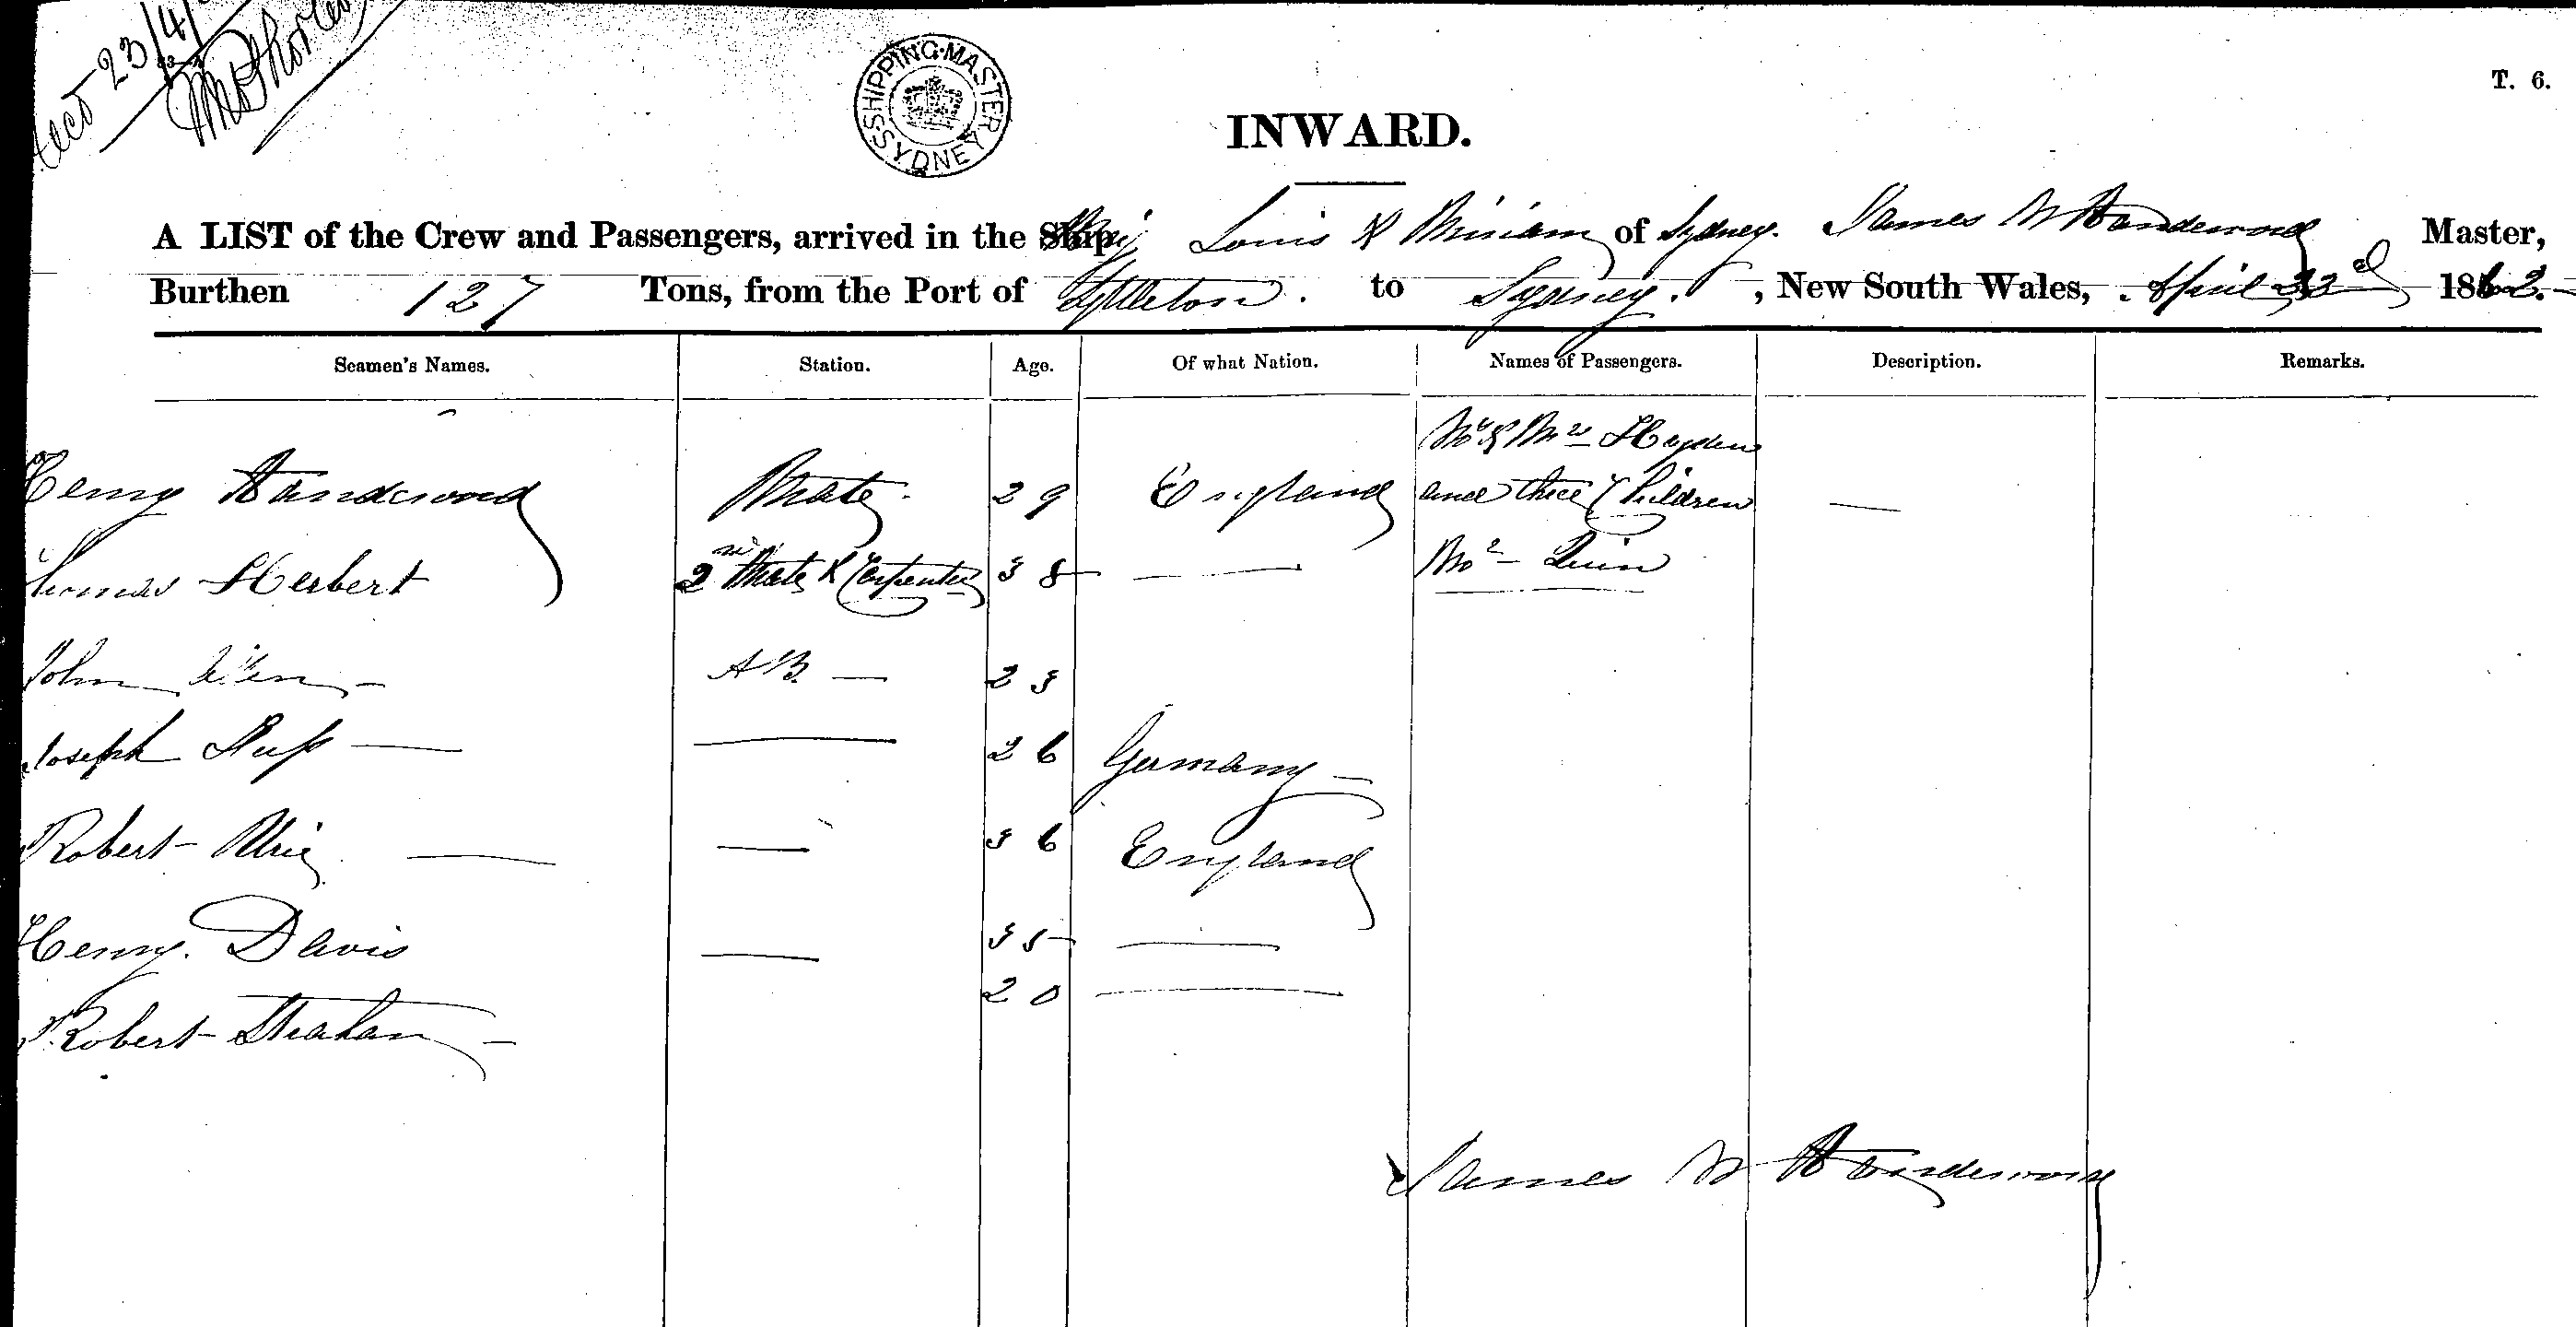 Recd 23/4/
SHIPPING MASTER SYDNEY
T. 6.
INWARD.
A LIST of the Crew and Passengers, arrived in the Ship Brig Louis & Miriam of Sydney. James W Handerwood Master,
Burthen 127 Tons, from the Port of Lyttleton. to Sydney. , New South Wales, April 23d 1862.
Seamen's Names. Station. Age. Of what Nation. Names of Passengers. Description. Remarks.
Mr & Mrs Hayden
Henry Handerwood Mate. 29 England and three Children —
Thomas Herbert 2nd Mate & Carpenter 38 — Mr Quin
John — AB — 23
Joseph — — 26 Germany —
Robert — — 36 England
Henry. Davis — 35 —
Robert Strahan — 20 —
James W Handerwood